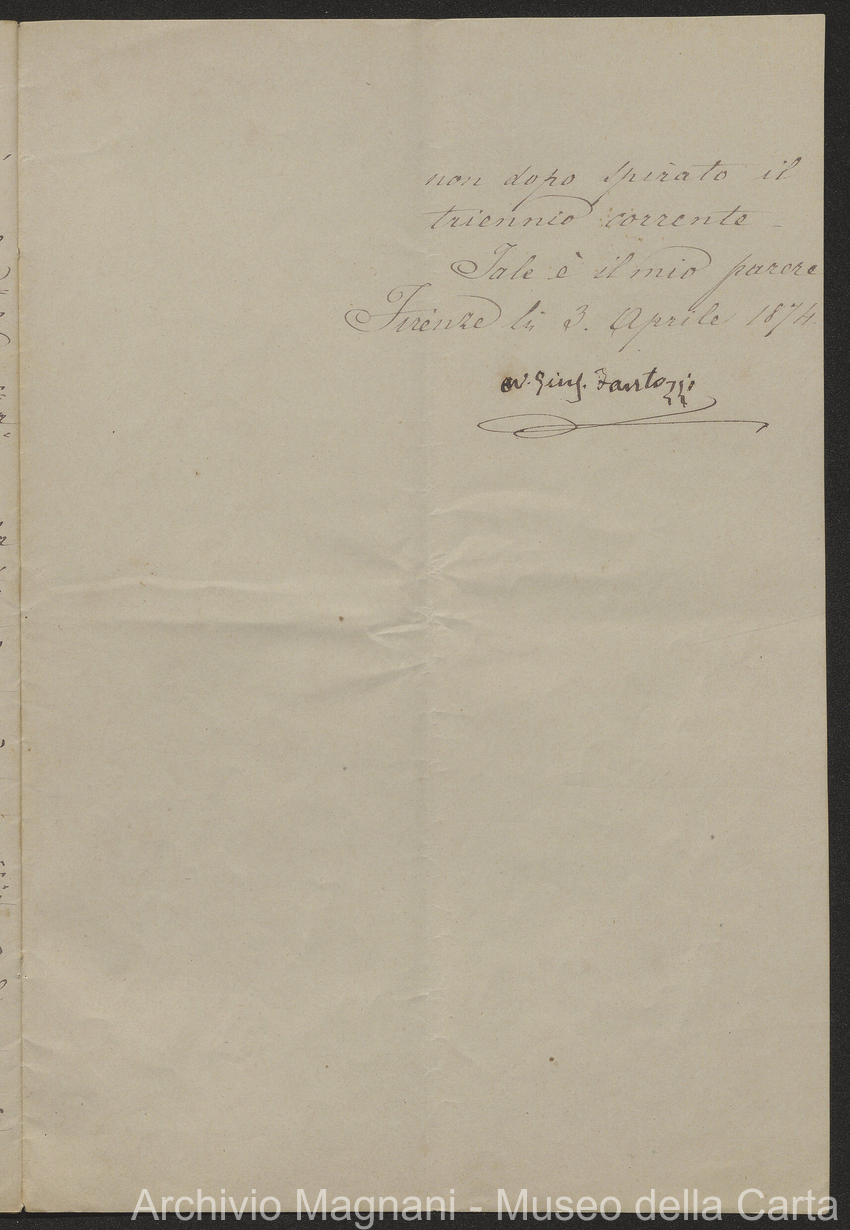 non dopo spirato il
triennio corrente -
Tale è il mio parere
Firenze li 3. Aprile 1874.
Gius. Fantozzi
Archivio Magnani - Museo della Carta